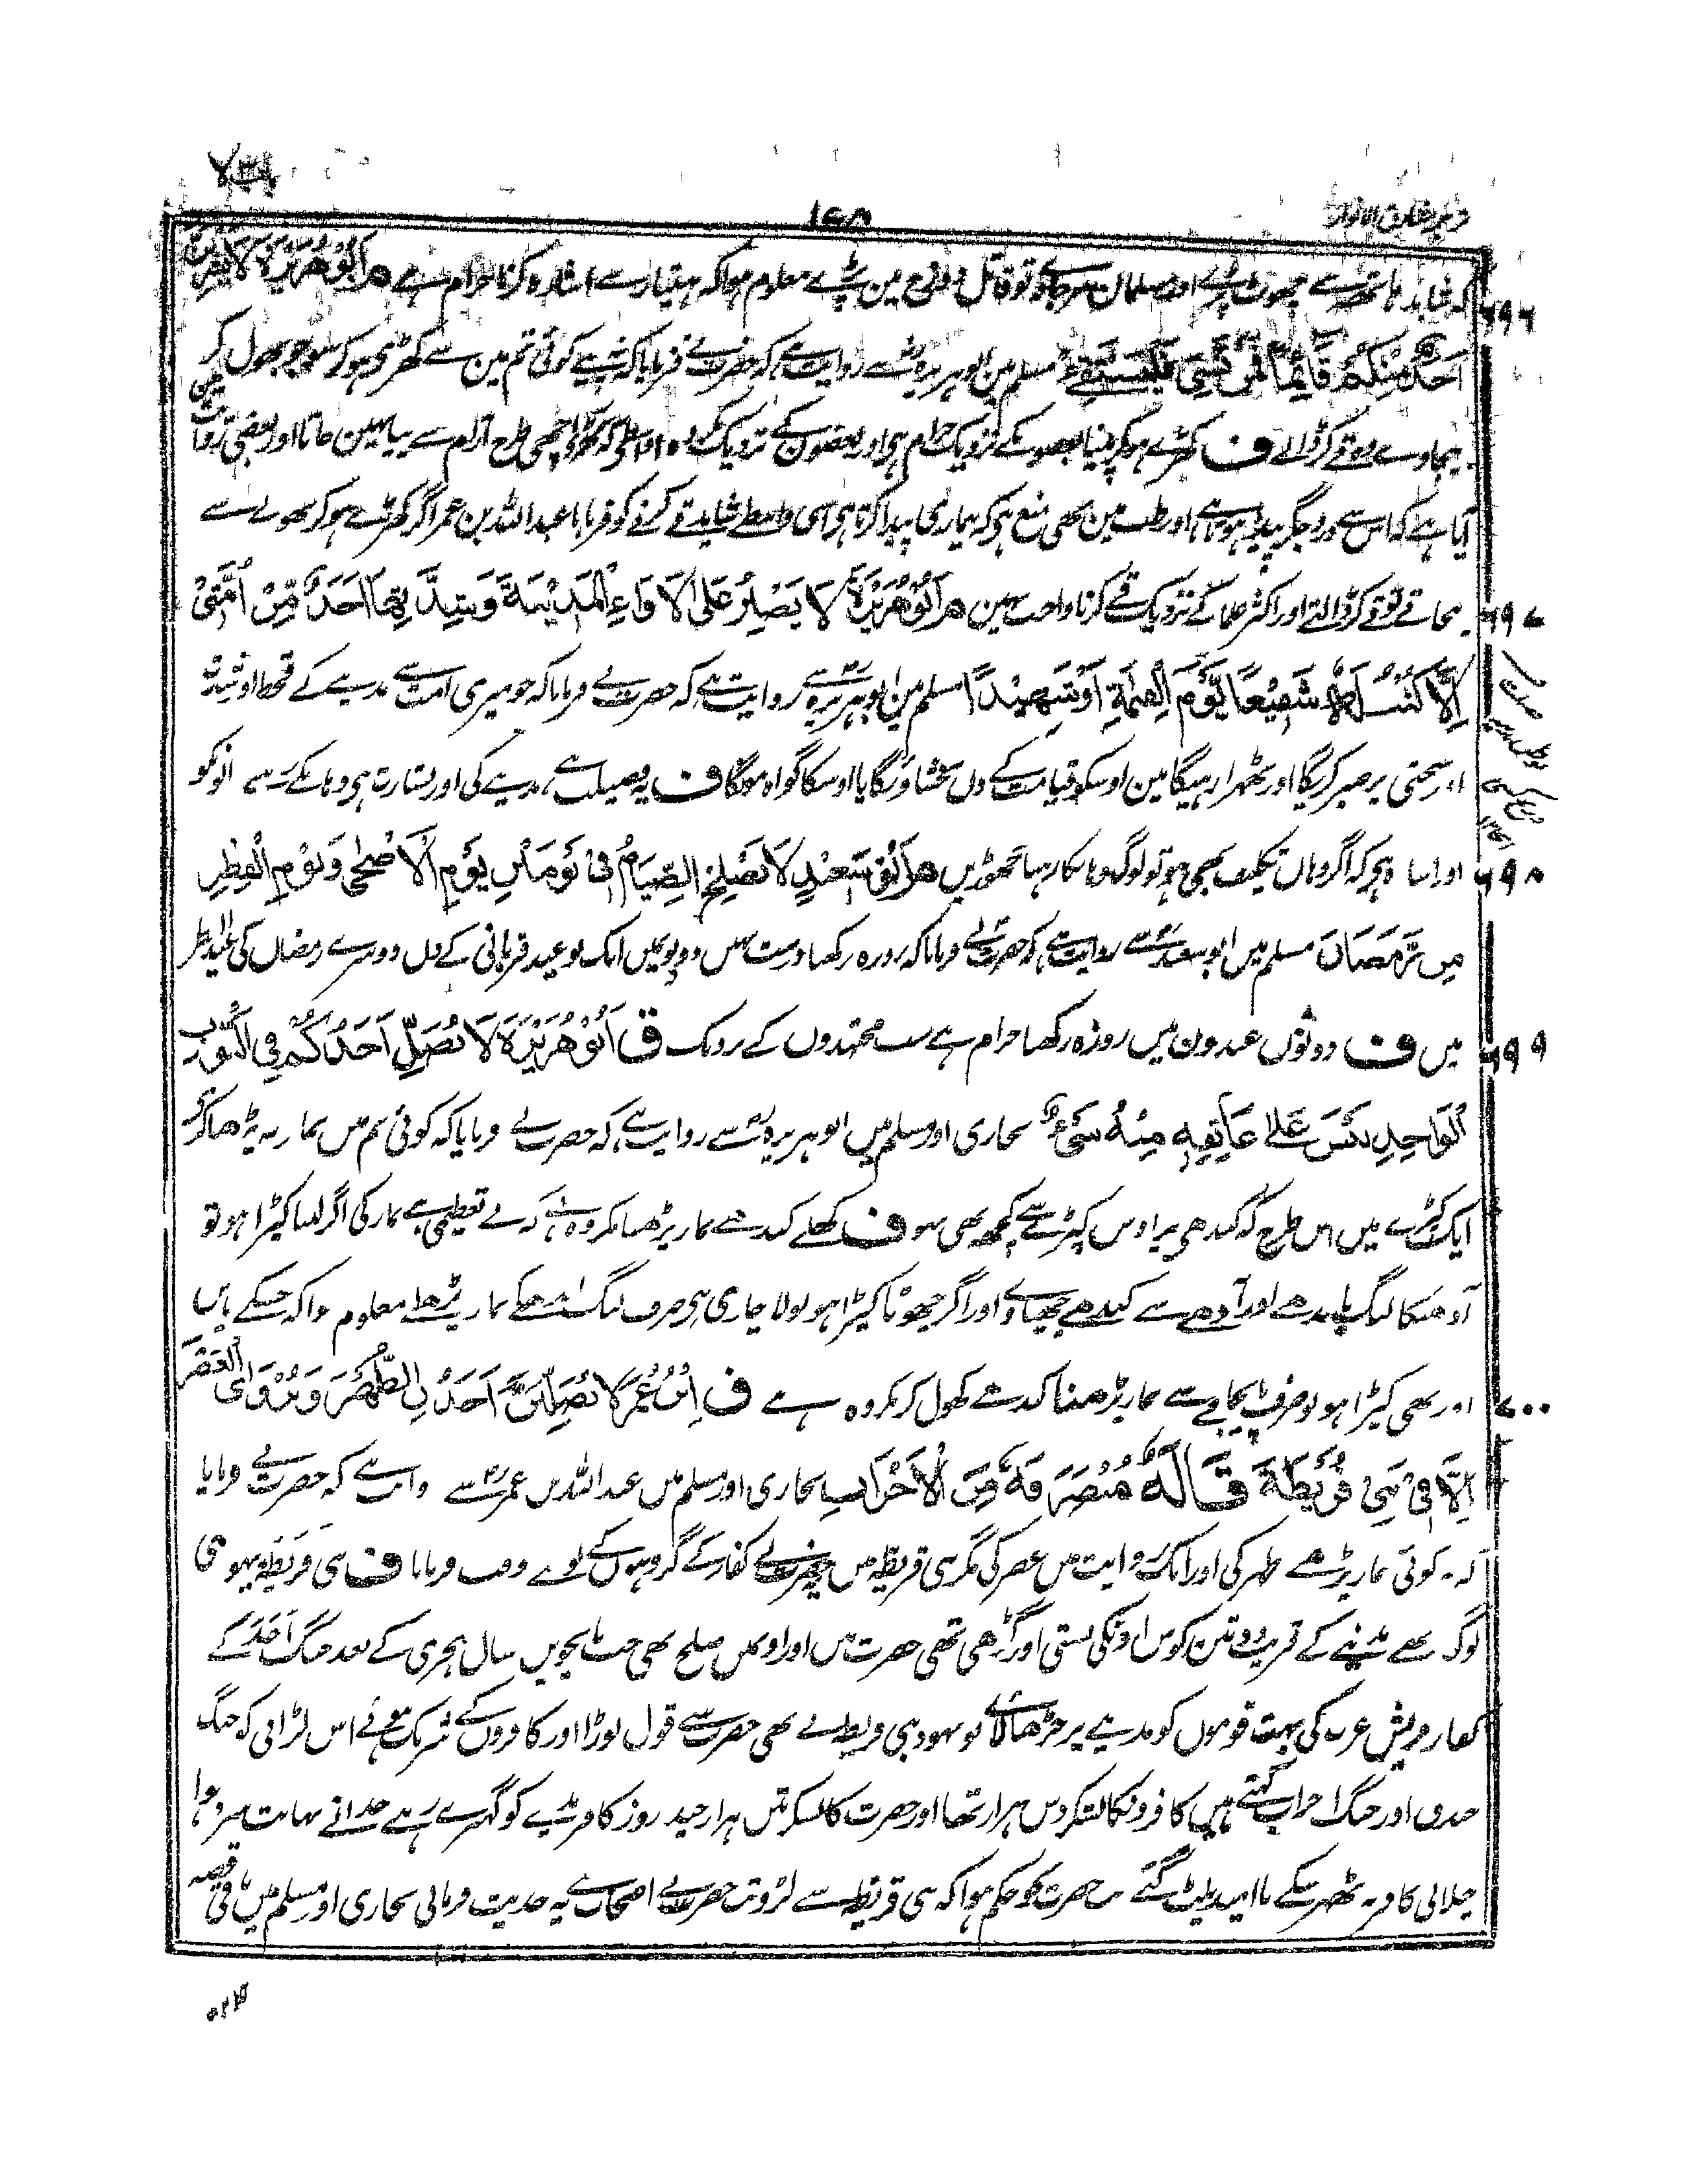 ۱۷۵
کہ شاید ہاتھ سے چھوٹ پڑے اور مسلمان مر جاوے تو قاتل دوزخ مین پڑے معلوم ہوا کہ ہتیار سے اشارہ کرنا حرام ہے هر أَبُو هُرَيْرَةَ لَا يَشْرَبَنَّ
۶۹۶
أَحَدٌ مِنْكُمْ قَائِمًا فَمَنْ نَسِيَ فَلْيَسْتَقِئْ مسلم مین ابوہریرہؓ سے روایت ہے کہ حضرت نے فرمایا کہ نہ پیے کوئی تم مین سے کھڑے ہو کر سو جو بھول کر
پیجاوے تو قے کر ڈالے ف کھڑے ہو کر پینا بعضوں کے نزدیک حرام ہی اور بعضون کے نزدیک مکروہ اسواسطے کہ کھڑے اچھی طرح آرام سے پیا نہین جاتا اور بعضی روایت میں
آیا ہے کہ اس سے درد جگر پیدا ہوتا ہے اور طب مین بھی منع ہی کہ بیماری پیدا کرتا ہی اسی واسطے شاید قے کرنے کو فرمایا عبد اللہ بن عمر اگر کھڑے ہو کر بھولے سے
پی جاتے تو قے کر ڈالتے اور اکثر علما کے نزدیک قے کرنا واجب نہین هر أَبُو هُرَيْرَةَ لَا يَصْبِرُ عَلَى لَأْوَاءِ الْمَدِيْنَةِ وَشِدَّتِهَا أَحَدٌ مِّنْ أُمَّتِيْ
۶۹۷
إِلَّا كُنْتُ لَهُ شَفِيْعًا يَّوْمَ الْقِيٰمَةِ أَوْ شَهِيْدًا مسلم مین ابوہریرہؓ سے روایت ہے کہ حضرت نے فرمایا کہ جو میری امت سے مدینے کے قحط اور شدت
اور سختی پر صبر کریگا اور ٹھہرا رہیگا مین اوسکو قیامت کے دن بخشاؤنگا یا اوسکا گواہ ہونگا ف یہ فضیلت ہے مدینے کی اور بشارت ہی وہانکے رہنے والونکو
اور اسا وجہ کہ اگر وہاں تکلیف بھی ہو تو لوگ وہاں کا رہنا نچھوڑیں هر أَبُو سَعِيْدٍ لَا يَصْلُحُ الصِّيَامُ فِيْ يَوْمَيْنِ يَوْمِ الْأَضْحٰى وَيَوْمِ الْفِطْرِ
۶۹۸
مِنْ رَمَضَانَ مسلم میں ابو سعیدؓ سے روایت ہے کہ حضرت نے فرمایا کہ روزہ رکھنا درست نہیں دو دنوں میں ایک تو عید قربانی کے دن دوسرے رمضان کی عید الفطر
میں ف دونوں عیدون میں روزہ رکھنا حرام ہے سب مجتہدوں کے نزدیک ق أَبُوْ هُرَيْرَةَ لَا يُصَلِّ أَحَدُكُمْ فِي الثَّوْبِ
۶۹۹
الْوَاحِدِ لَيْسَ عَلٰى عَاتِقِهِ مِنْهُ شَيْءٌ بخاری اور مسلم میں ابوہریرہؓ سے روایت ہے کہ حضرت نے فرمایا کہ کوئی تم میں نماز نہ پڑھا کرے
ایک کپڑے میں اس طرح کہ کندھی پر اوس کپڑے سے کچھ بھی نہو ف کھلے کندھے نماز پڑھنا مکروہ ہے کہ بے تعظیمی ہے نماز کی اگر لنبا کپڑا ہو تو
آدھیکا لنگ باندھے اور آدھے سے کندھے چھپاوے اور اگر چھوٹا کپڑا ہو تو لاچاری ہی صرف لنگ باندھکے نماز پڑھے معلوم ہوا کہ جسکے پاس
اور بھی کپڑا ہو تو صرف پایجامے سے نماز پڑھنا کندھے کھول کر مکروہ ہے ف ابْنُ عُمَرَ لَا يُصَلِّيَنَّ أَحَدٌ الظُّهْرَ وَيُرْوَى الْعَصْرَ
۷۰۰
إِلَّا فِيْ بَنِيْ قُرَيْظَةَ قَالَهُ مُنْصَرَفَهُ مِنَ الْأَحْزَابِ بخاری اور مسلم میں عبد اللہ بن عمرؓ سے روایت ہے کہ حضرت نے فرمایا
کہ نہ کوئی نماز پڑھے ظہر کی اور ایک روایت میں عصر کی مگر بنی قریظہ میں حضرت نے کفار کے گروہوں کے لوٹتے وقت فرمایا ف بنی قریظہ یہودی
لوگ تھے مدینے کے قریب دو تین کوس اونکی بستی اور گڑھی تھی حضرت میں اور اونمیں صلح تھی جب پانچویں سال ہجری کے بعد جنگ احد کے
کفار قریش عرب کی بہت قوموں کو مدینے پر چڑھا لائے تو یہود بنی قریظہ نے بھی حضرت سے قول توڑا اور کافروں کے شریک ہوئے اس لڑائی کو جنگ
خندق اور جنگ احزاب کہتے ہیں کافرونکا لشکر دس ہزار تھا اور حضرت کا لشکر تین ہزار چند روز کافر مدینے کو گھیرے رہے خدا نے نہایت سرد ہوا
چلائی کافر نہ ٹھہر سکے ناامید پلٹ گئے تب حضرت کو حکم ہوا کہ بنی قریظہ سے لڑو تب حضرت نے اصحاب سے یہ حدیث فرمائی بخاری اور مسلم میں باقی قصہ